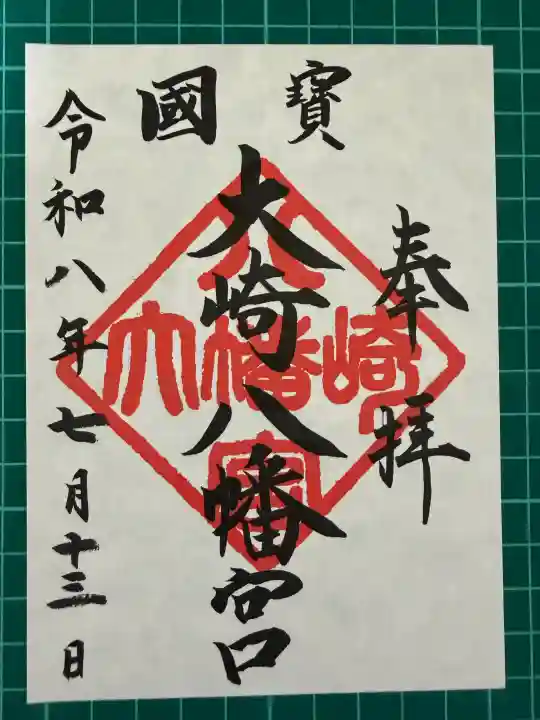 國寶
奉拝
大崎八幡宮
大崎
八幡
宮
令和八年七月十三日